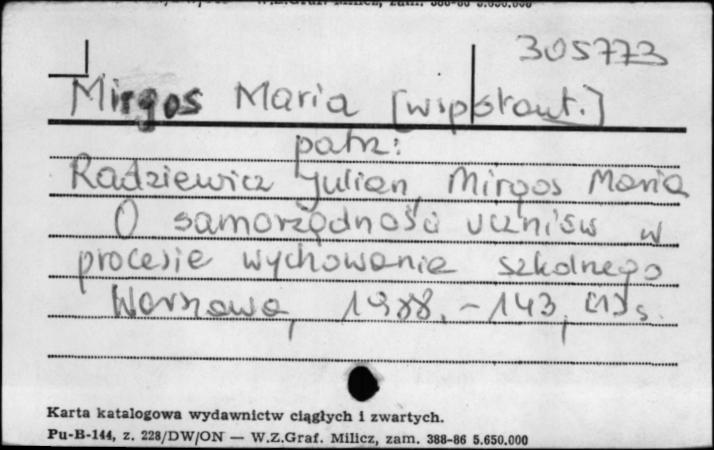 305773
Mirgos Maria [współaut.]
patrz:
Radziewicz Julian, Mirgos Maria
O samorządności uczniów w
procesie wychowania szkolnego
Warszawa, 1988. - 143, [1] s.
Karta katalogowa wydawnictw ciągłych i zwartych.
Pu-B-144, z. 228/DW/ON — W.Z.Graf. Milicz, zam. 388-86 5.650.000